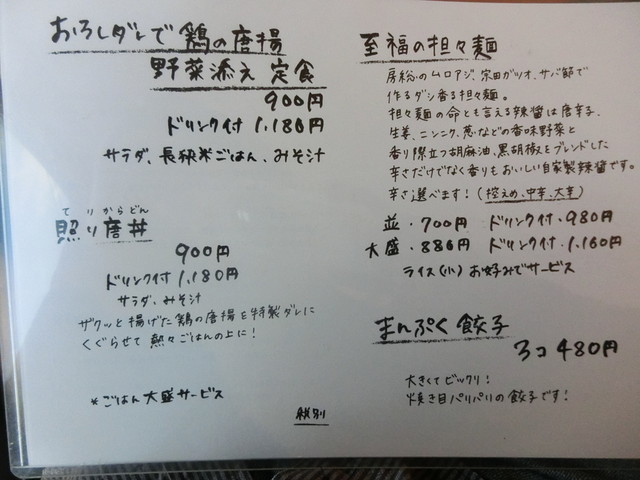 おろしダレで鶏の唐揚
野菜添え 定食
900円
ドリンク付 1,180円
サラダ、長柄米ごはん、みそ汁
てりからどん
照り唐丼
900円
ドリンク付 1,180円
サラダ、みそ汁
ザクッと揚げた鶏の唐揚を特製ダレに
くぐらせて 熱々ごはんの上に!
*ごはん大盛サービス
税別
至福の担々麺
房総のムロアジ、宗田ガツオ、サバ節で
作るダシ香る担々麺。
担々麺の命とも言える辣醤は唐辛子、
生姜、ニンニク、葱などの香味野菜と
香り際立つ胡麻油、黒胡椒をブレンドした
辛さだけでなく香りもおいしい自家製辣醤です。
辛さ選べます!(控えめ、中辛、大辛)
並・700円 ドリンク付・980円
大盛・880円 ドリンク付・1,160円
ライス(小)お好みでサービス
まんぷく餃子
3コ 480円
大きくてビックリ!
焼き目パリパリの餃子です!